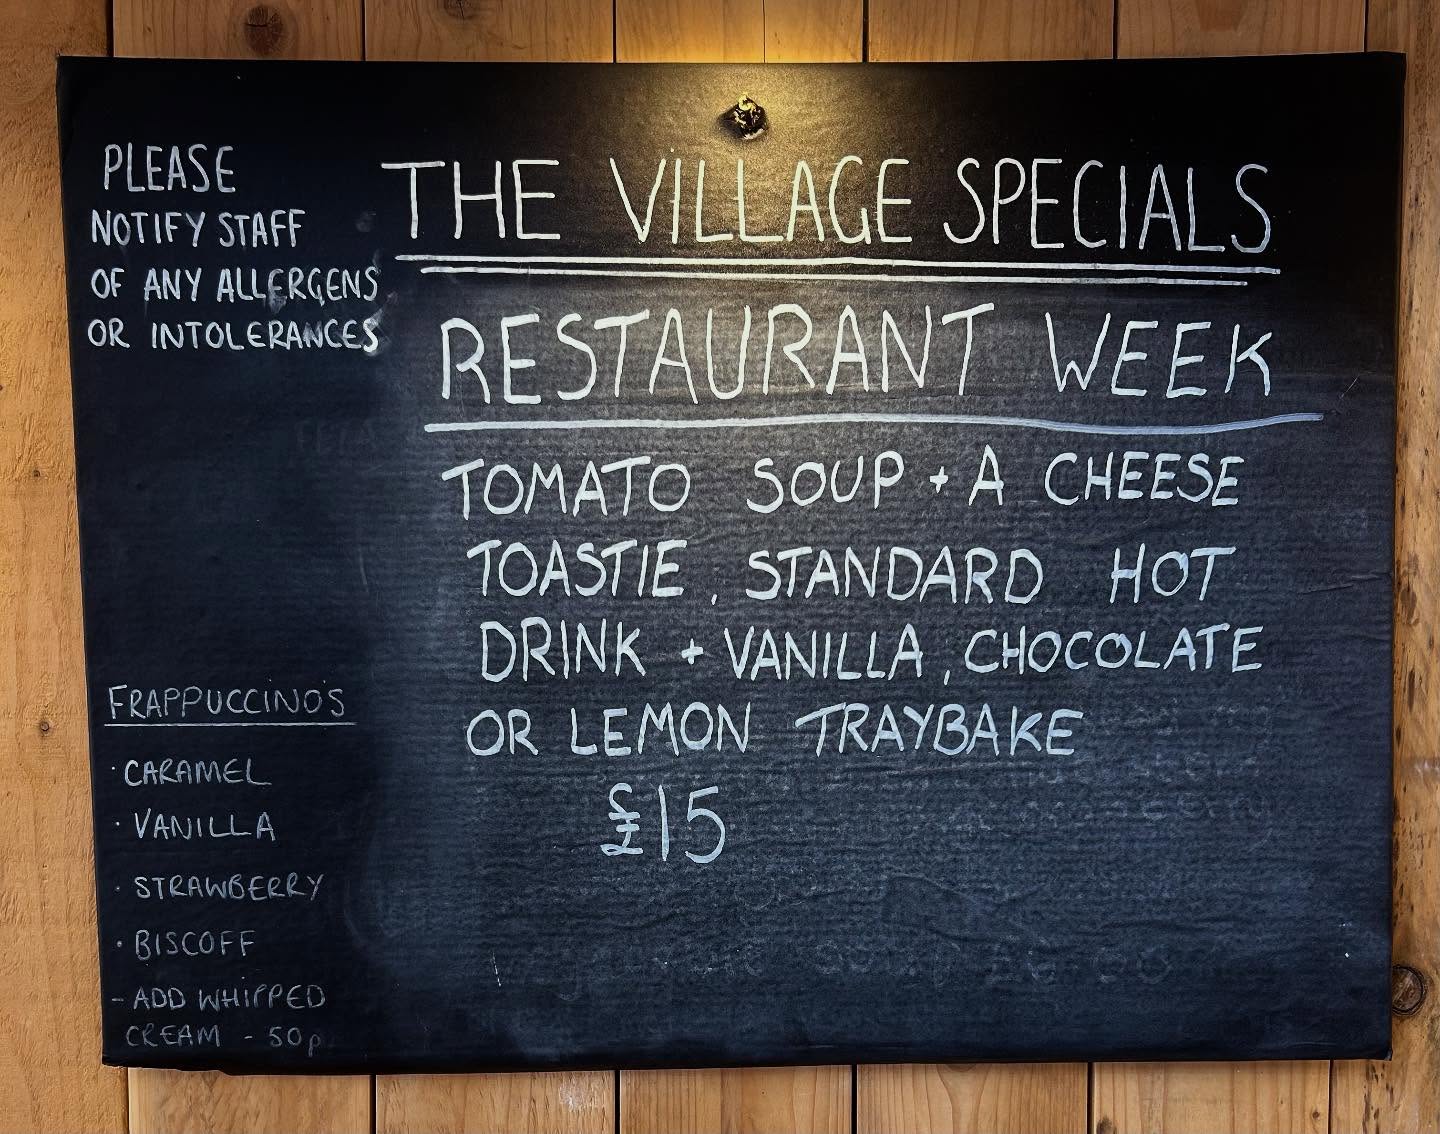 PLEASE
NOTIFY STAFF
OF ANY ALLERGENS
OR INTOLERANCES
THE VILLAGE SPECIALS
RESTAURANT WEEK
TOMATO SOUP + A CHEESE
TOASTIE, STANDARD HOT
DRINK + VANILLA, CHOCOLATE
OR LEMON TRAYBAKE
£15
FRAPPUCCINO'S
· CARAMEL
· VANILLA
· STRAWBERRY
· BISCOFF
- ADD WHIPPED
CREAM - 50p